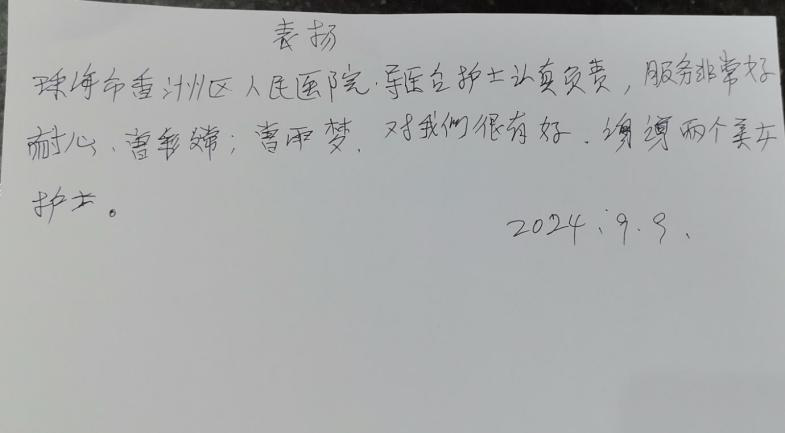 表扬
珠海市香洲区人民医院.导医台护士认真负责，服务非常好
耐心、曹彩嫦；曹雨梦.对我们很有好.谢谢两个美女
护士。
2024.9.9.